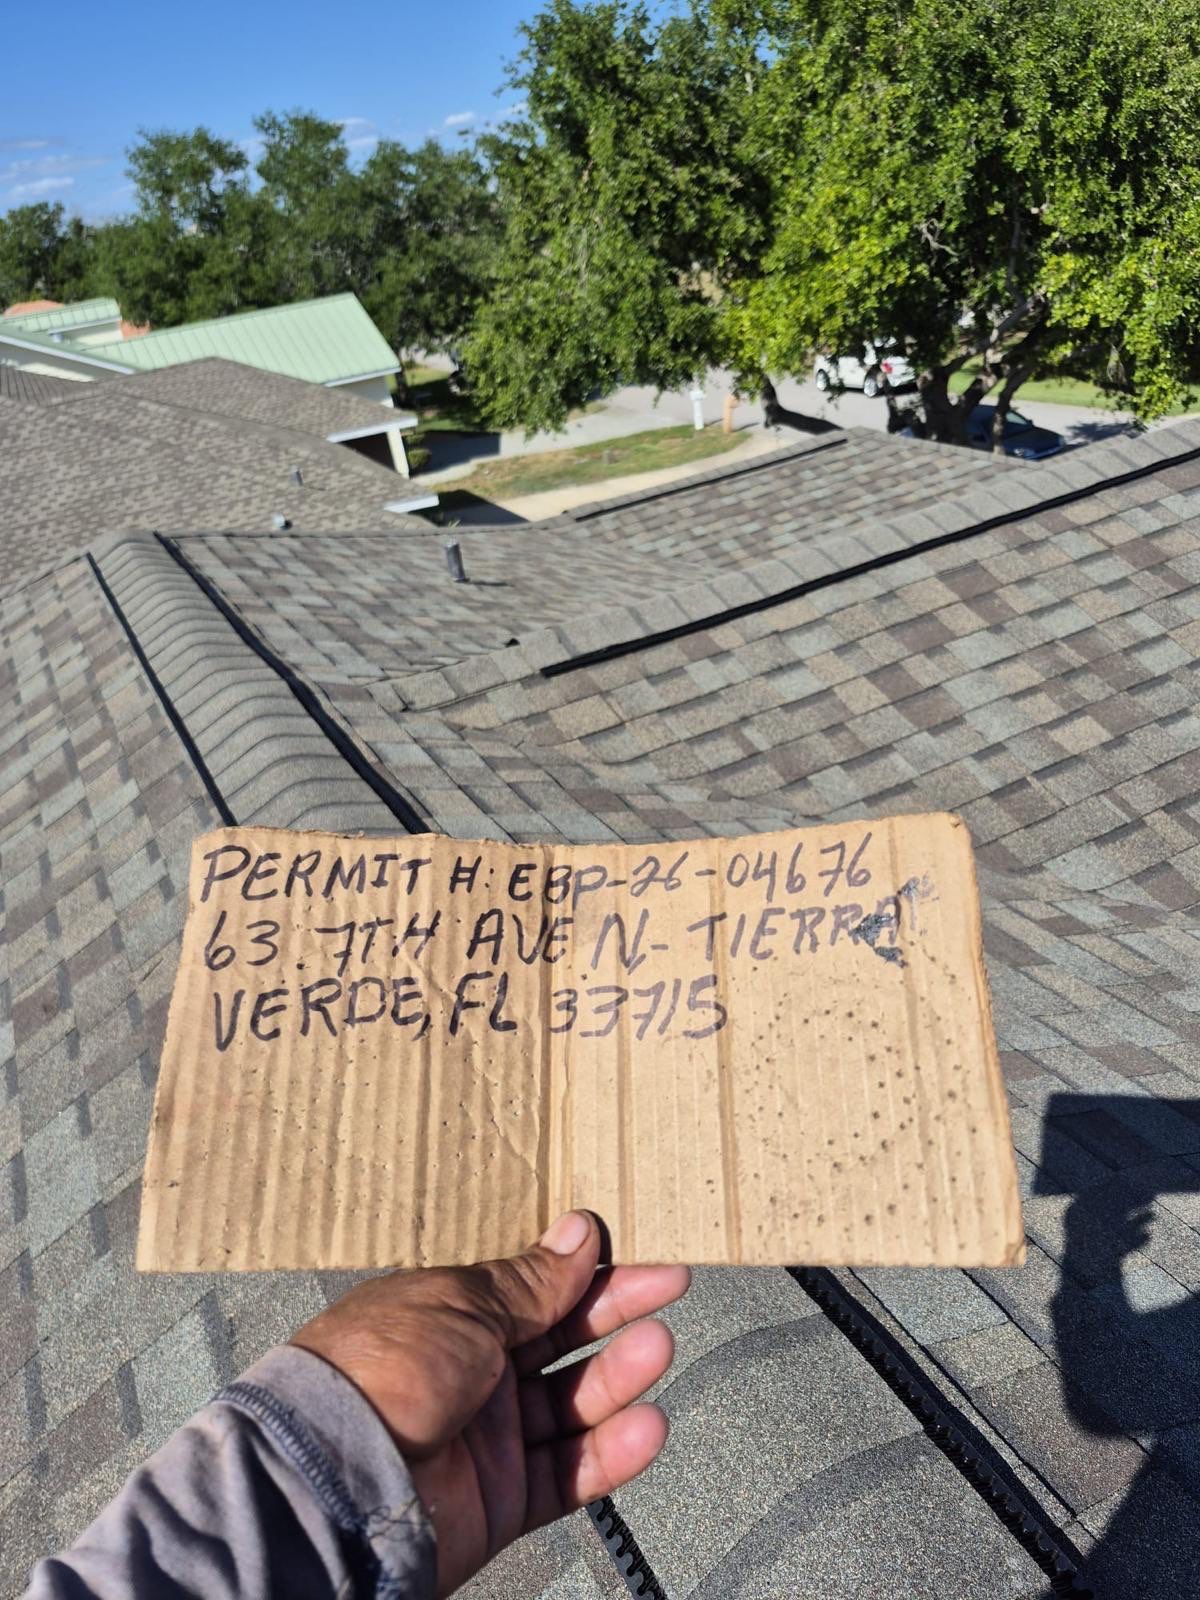 PERMIT #: EBP-26-04676
63 7TH AVE N- TIERRA
VERDE, FL 33715